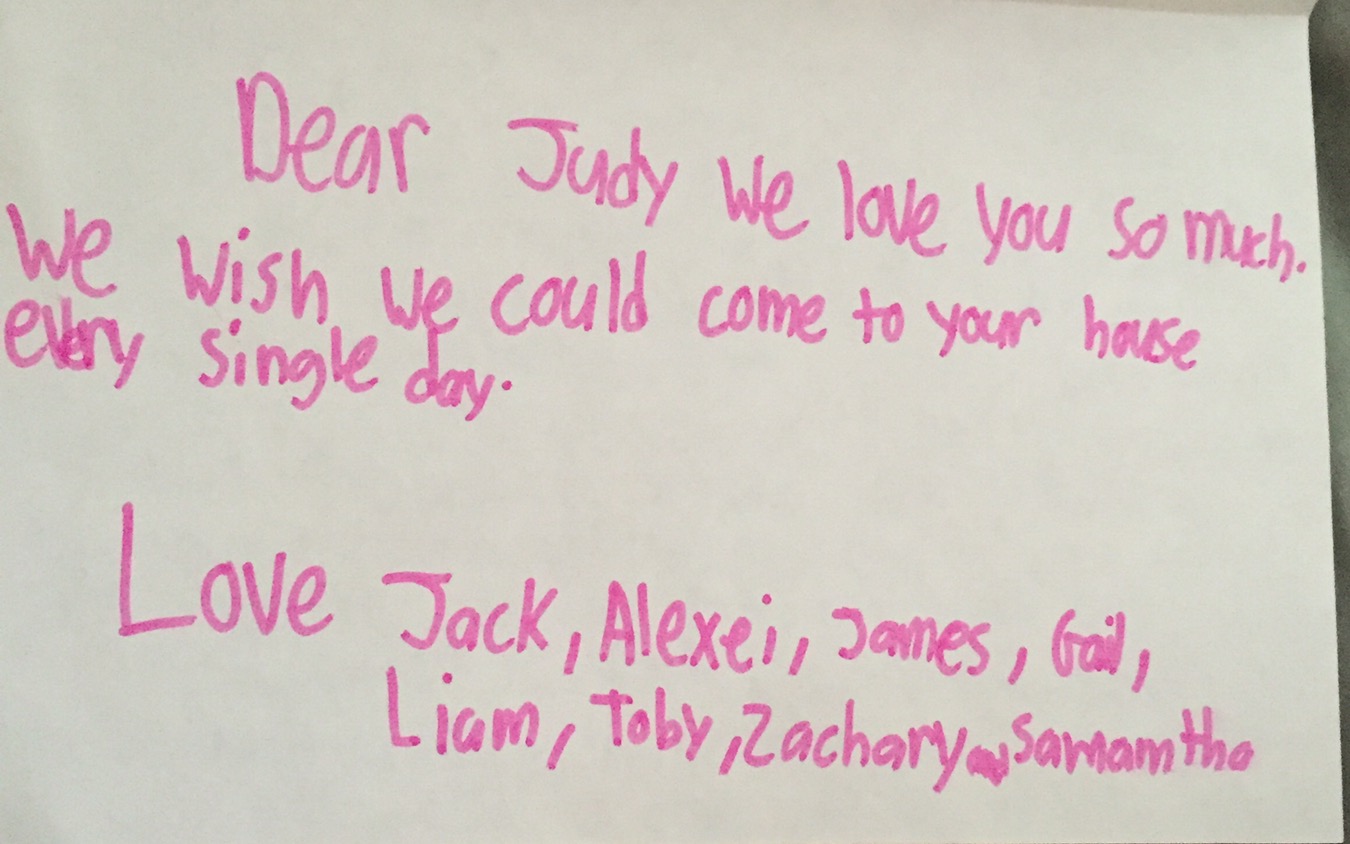 Dear Judy We love you so much.
We wish we could come to your house
every single day.
Love Jack, Alexei, James, Gail,
Liam, Toby, Zachary Samamtha